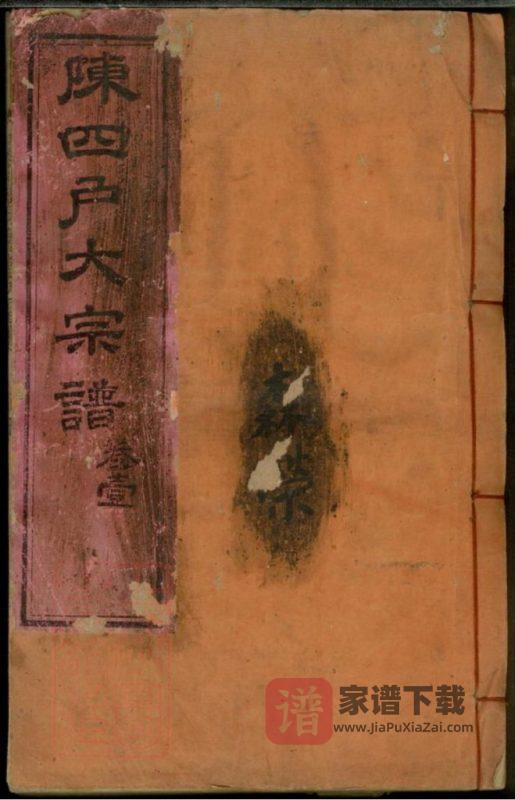 陳四戶大宗譜
卷壹
谱 家谱下载
www.JiaPuXiaZai.com